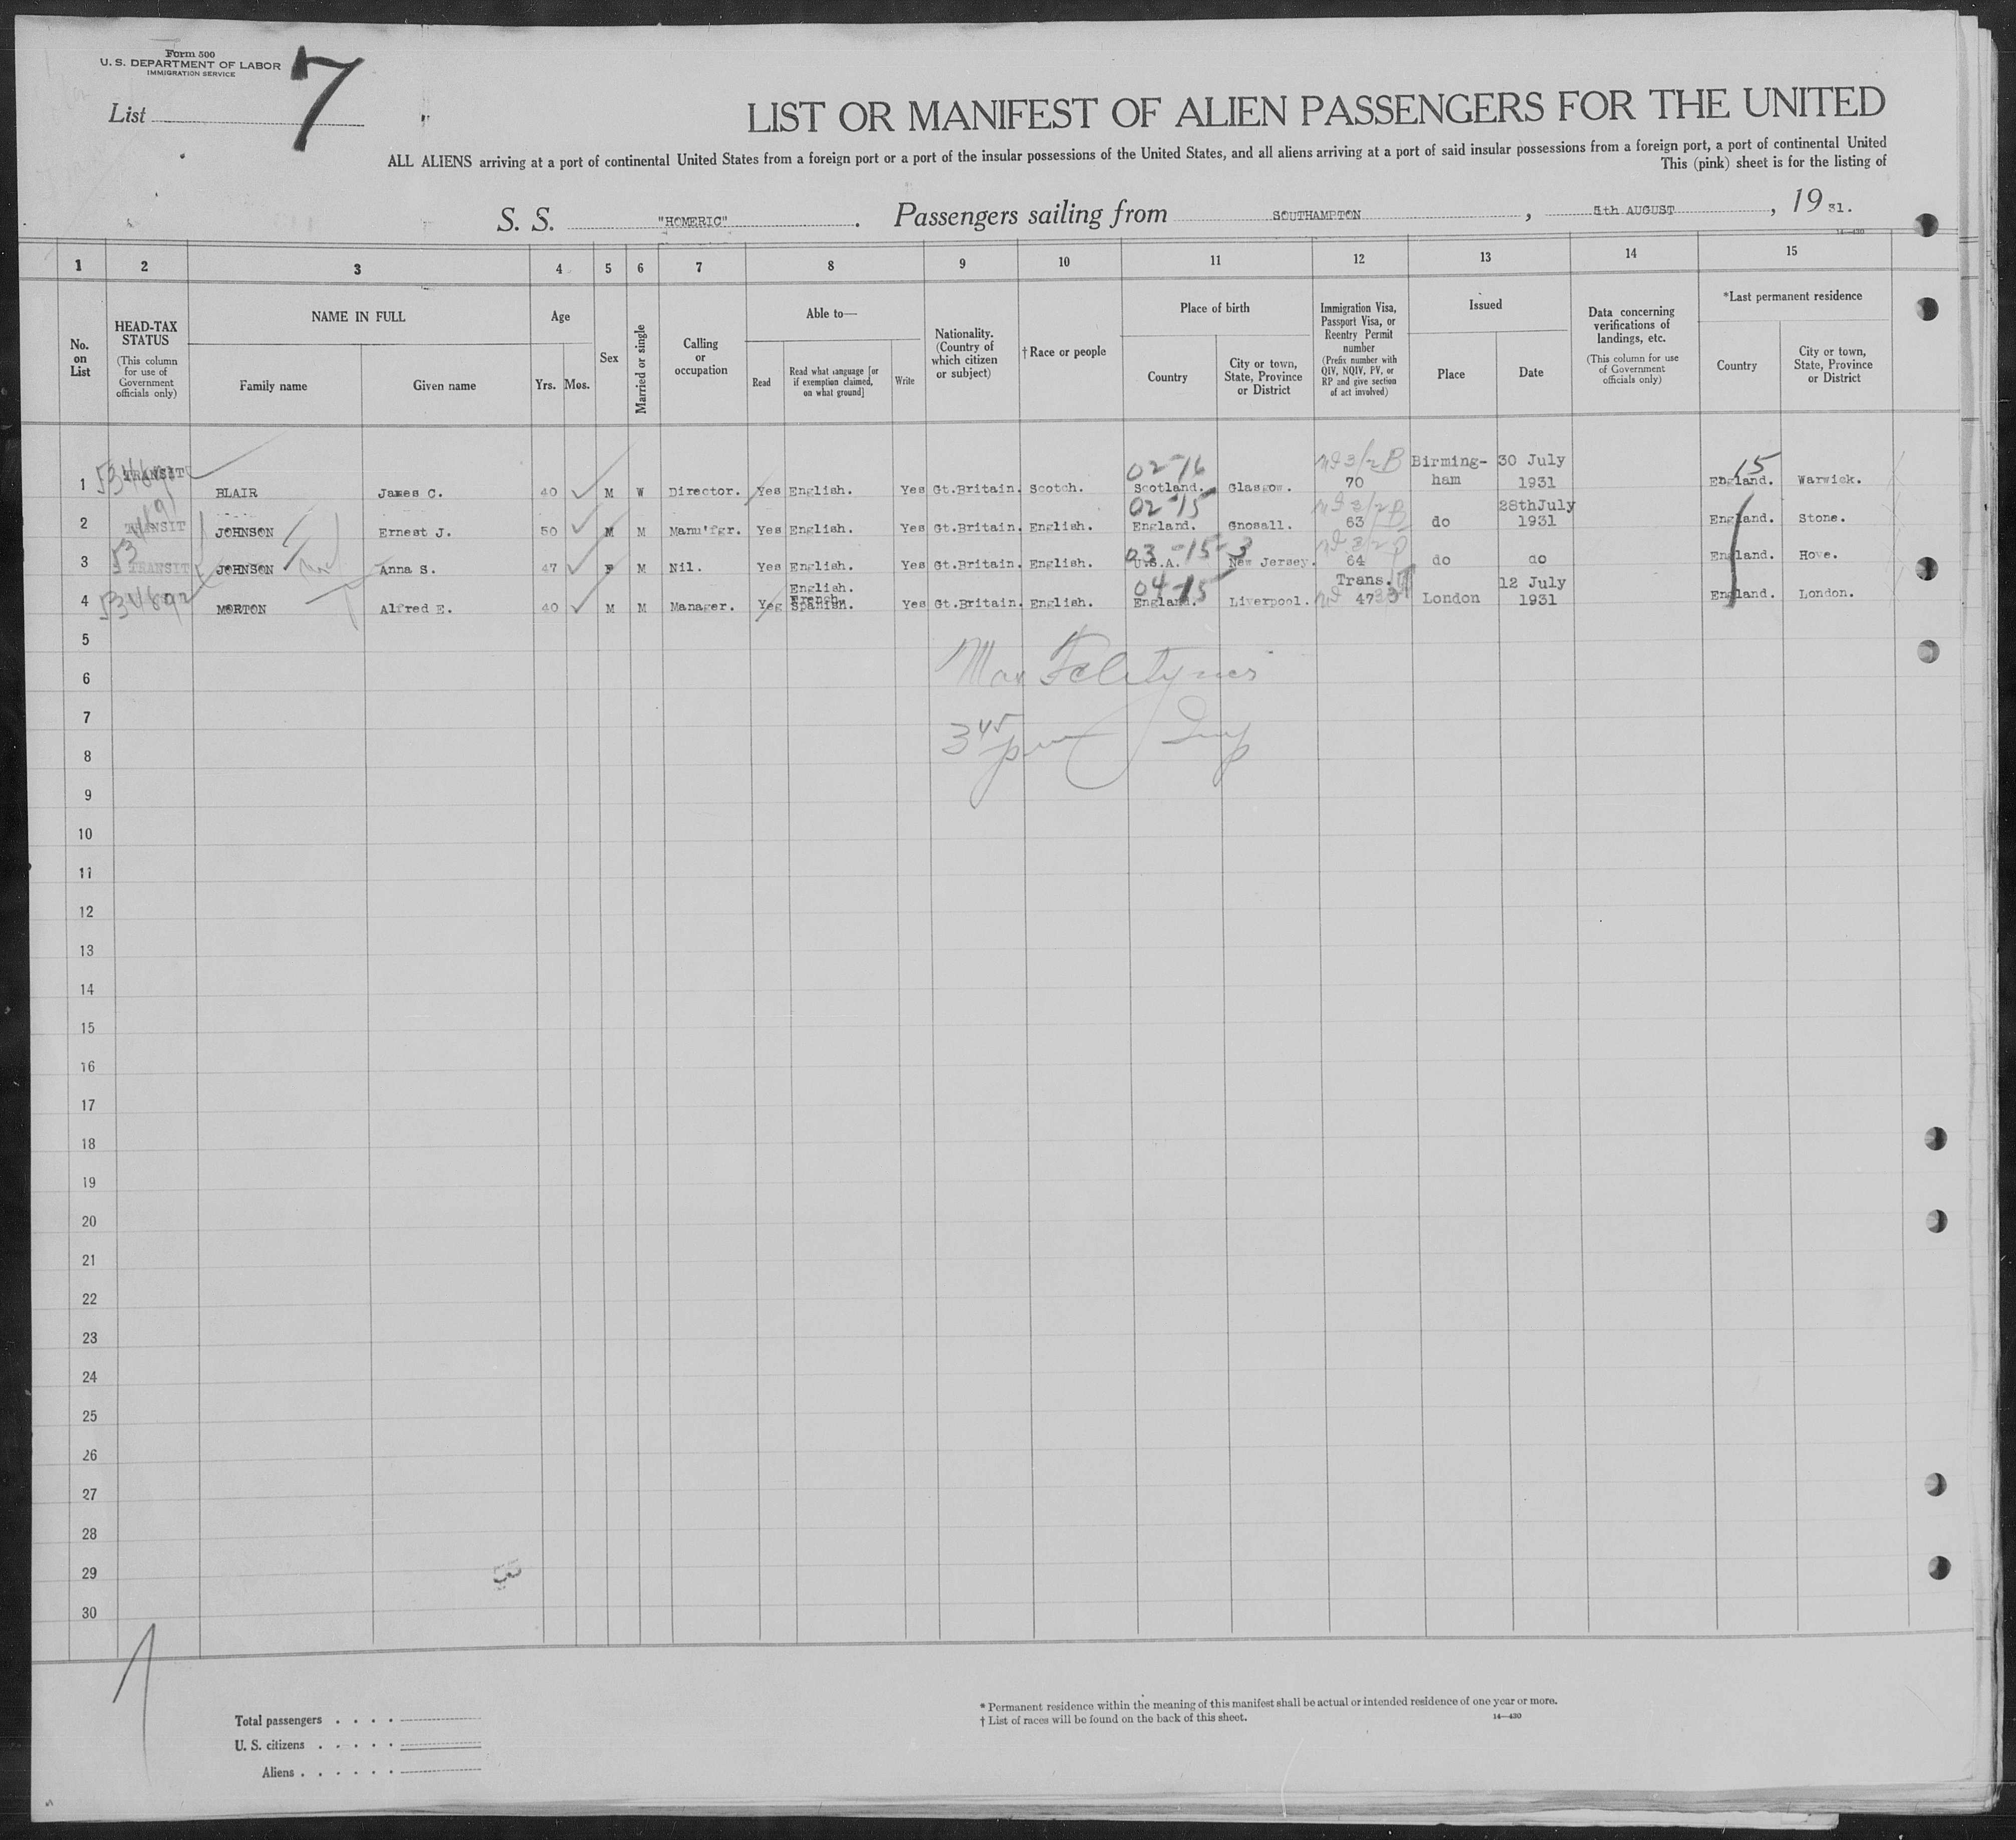 Form 500
U. S. DEPARTMENT OF LABOR
IMMIGRATION SERVICE
List 7
LIST OR MANIFEST OF ALIEN PASSENGERS FOR THE UNITED
ALL ALIENS arriving at a port of continental United States from a foreign port or a port of the insular possessions of the United States, and all aliens arriving at a port of said insular possessions from a foreign port, a port of continental United
This (pink) sheet is for the listing of
S. S. "HOMERIC". Passengers sailing from SOUTHAMPTON, 5th AUGUST, 19 31.
14—430
1 2 3 4 5 6 7 8 9 10 11 12 13 14 15
No. on List
HEAD-TAX STATUS (This column for use of Government officials only)
NAME IN FULL
Family name Given name
Age
Yrs. Mos.
Sex
Married or single
Calling or occupation
Able to—
Read Read what language [or if exemption claimed, on what ground] Write
Nationality. (Country of which citizen or subject)
†Race or people
Place of birth
Country City or town, State, Province or District
Immigration Visa, Passport Visa, or Reentry Permit number (Prefix number with QIV, NQIV, PV, or RP and give section of act involved)
Issued
Place Date
Data concerning verifications of landings, etc. (This column for use of Government officials only)
*Last permanent residence
Country City or town, State, Province or District
02-16 3/2B Birming- 30 July 15
1 TRANSIT BLAIR James C. 40 M W Director. Yes English. Yes Gt.Britain. Scotch. Scotland. Glasgow. 70 ham 1931 England. Warwick.
02-15 3/2B 28thJuly
2 TRANSIT JOHNSON Ernest J. 50 M M Manu'fgr. Yes English. Yes Gt.Britain. English. England. Gnosall. 63 do 1931 England. Stone.
03-15-3
3 TRANSIT JOHNSON Anna S. 47 F M Nil. Yes English. Yes Gt.Britain. English. U.S.A. New Jersey. 64 do do England. Hove.
English. 04-15 Trans. 12 July
4 MORTON Alfred E. 40 M M Manager. Yes French. Spanish. Yes Gt.Britain. English. England. Liverpool. 47 London 1931 England. London.
5
6
7
3 45 pm
8
9
10
11
12
13
14
15
16
17
18
19
20
21
22
23
24
25
26
27
28
29 55
30
Total passengers . . . .
U. S. citizens . . . . .
Aliens . . . . . .
* Permanent residence within the meaning of this manifest shall be actual or intended residence of one year or more.
† List of races will be found on the back of this sheet.
14—430